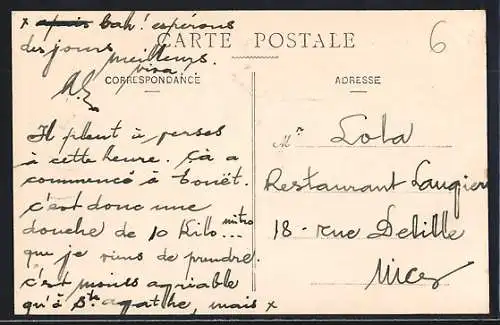 x ~~apais~~ bah! espérons
des jours meilleurs.
bisa.
CARTE POSTALE
6
CORRESPONDANCE
ADRESSE
Il pleut à verses
à cette heure. Çà a
commencé à Touët.
c'est donc une
douche de 10 Kilo... mitro
que je viens de prendre.
c'est moins agriable
qu'à Ste agathe, mais x
Mr Lola
Restaurant Laugier
18 - rue Delille
Nice